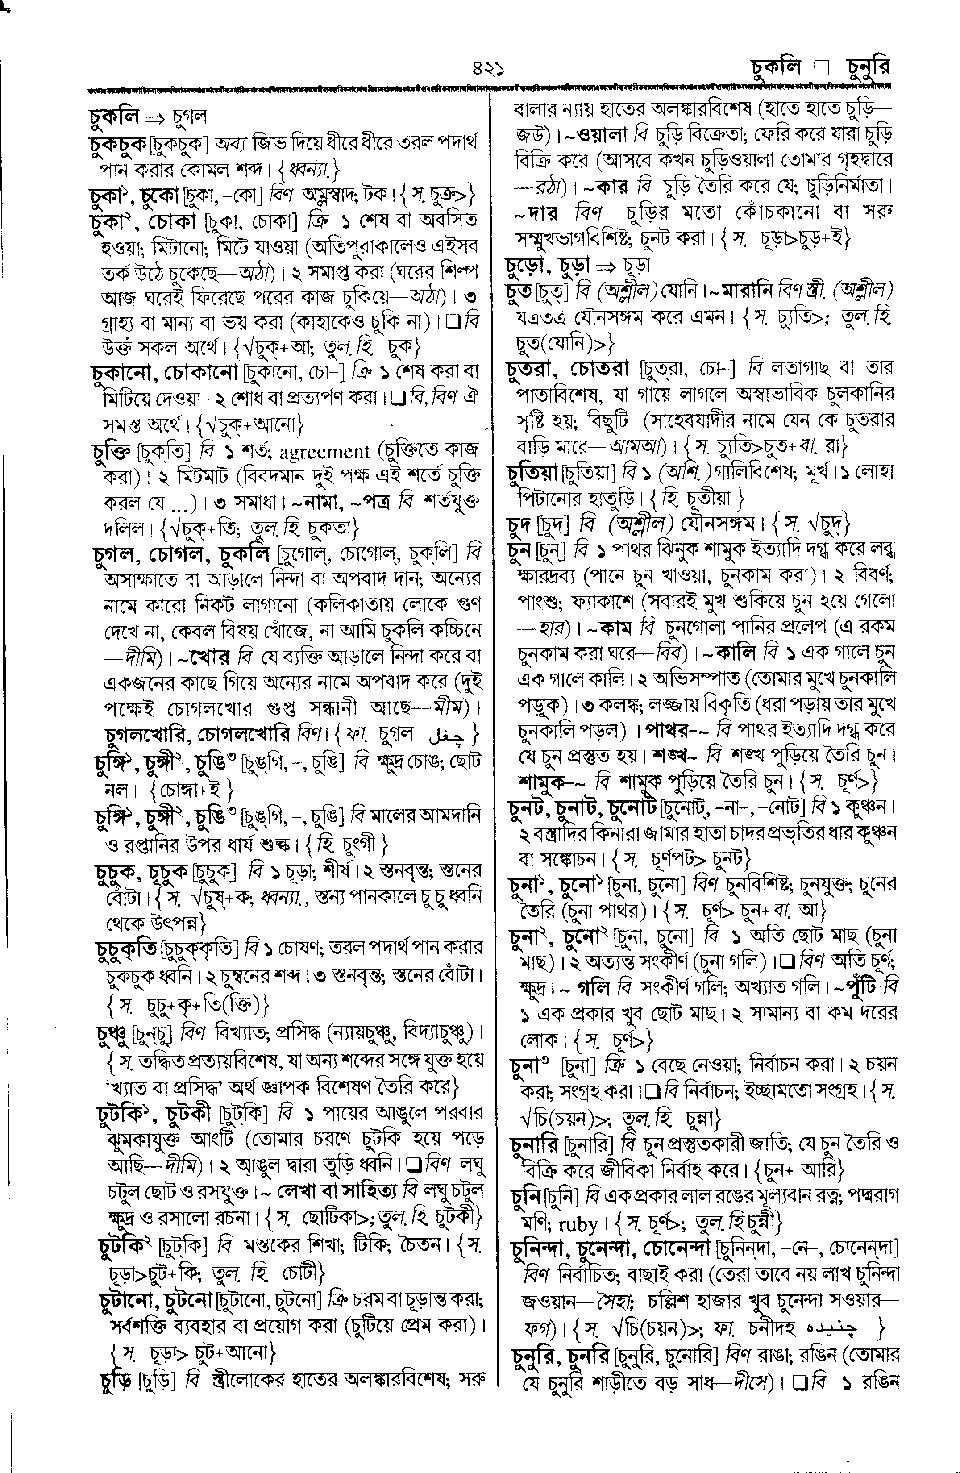 ৪২১
চুকলি □ চুনুরি
চুকলি ⇒ চুগল
চুকচুক [চুক্‌চুক্‌] অব্য জিভ দিয়ে ধীরে ধীরে তরল পদার্থ
পান করার কোমল শব্দ। {ধ্বন্যা.}
চুকা¹, চুকো [চুকা, –কো] বিণ অম্লস্বাদ; টক। {স. চুক্র>}
চুকা², চোকা [চুকা, চোকা] ক্রি ১ শেষ বা অবসিত
হওয়া; মিটানো; মিটে যাওয়া (অতিপুরাকালেও এইসব
তর্ক উঠে চুকেছে—অঠা)। ২ সমাপ্ত করা (ঘরের শিল্প
আজ ঘরেই ফিরেছে পরের কাজ চুকিয়ে—অঠা)। ৩
গ্রাহ্য বা মান্য বা ভয় করা (কাহাকেও চুকি না)। □ বি
উক্ত সকল অর্থে। {√চুক্‌+আ; তুল. হি. চুক}
চুকানো, চোকানো [চুকানো, চো–] ক্রি ১ শেষ করা বা
মিটিয়ে দেওয়া ২ শোধ বা প্রত্যর্পণ করা। □ বি, বিণ ঐ
সমস্ত অর্থে। {√চুক্‌+আনো}
চুক্তি [চুক্‌তি] বি ১ শর্ত; agreement (চুক্তিতে কাজ
করা)। ২ মিটমাট (বিবদমান দুই পক্ষ এই শর্তে চুক্তি
করল যে ...)। ৩ সমাধা। ~নামা, ~পত্র বি শর্তযুক্ত
দলিল। {√চুক্‌+তি; তুল. হি. চুকতা}
চুগল, চোগল, চুকলি [চুগোল্‌, চোগোল্‌, চুক্‌লি] বি
অসাক্ষাতে বা আড়ালে নিন্দা বা অপবাদ দান; অন্যের
নামে কারো নিকট লাগানো (কলিকাতায় লোকে গুণ
দেখে না, কেবল বিষয় খোঁজে, না আমি চুকলি কচ্চিনে
—দীমি)। ~খোর বি যে ব্যক্তি আড়ালে নিন্দা করে বা
একজনের কাছে গিয়ে অন্যের নামে অপবাদ করে (দুই
পক্ষেই চোগলখোর গুপ্ত সন্ধানী আছে—মীম)।
চুগলখোরি, চোগলখোরি বিণ। {ফা. চুগল چغل}
চুঙ্গি¹, চুঙ্গী², চুঙি³ [চুঙ্‌গি, –, চুঙি] বি ক্ষুদ্র চোঙ; ছোট
নল। {চোঙ্গা+ই}
চুঙ্গি¹, চুঙ্গী², চুঙি³ [চুঙ্‌গি, –, চুঙি] বি মালের আমদানি
ও রপ্তানির উপর ধার্য শুল্ক। {হি. চুংগী}
চুচুক, চূচুক [চুচুক্‌] বি ১ চূড়া; শীর্ষ। ২ স্তনবৃন্ত; স্তনের
বোঁটা। {স. √চূষ্‌+ক; ধ্বন্যা., স্তন্য পানকালে চু চু ধ্বনি
থেকে উৎপন্ন}
চুচুকৃতি [চুচুক্‌কৃতি] বি ১ চোষণ; তরল পদার্থ পান করার
চুকচুক ধ্বনি। ২ চুম্বনের শব্দ। ৩ স্তনবৃন্ত; স্তনের বোঁটা।
{স. চুচু+কৃ+তি(ক্তি)}
চুঞ্চু [চুন্‌চু] বিণ বিখ্যাত; প্রসিদ্ধ (ন্যায়চুঞ্চু, বিদ্যাচুঞ্চু)।
{স. তদ্ধিত প্রত্যয়বিশেষ, যা অন্য শব্দের সঙ্গে যুক্ত হয়ে
‘খ্যাত বা প্রসিদ্ধ’ অর্থ জ্ঞাপক বিশেষণ তৈরি করে}
চুটকি¹, চুটকী [চুট্‌কি] বি ১ পায়ের আঙুলে পরবার
ঝুমকাযুক্ত আংটি (তোমার চরণে চুটকি হয়ে পড়ে
আছি—দীমি)। ২ আঙুল দ্বারা তুড়ি ধ্বনি। □ বিণ লঘু
চটুল ছোট ও রসযুক্ত। ~ লেখা বা সাহিত্য বি লঘু চটুল
ক্ষুদ্র ও রসালো রচনা। {স. ছোটিকা>; তুল. হি. চুটকী}
চুটকি² [চুট্‌কি] বি মস্তকের শিখা; টিকি; চৈতন। {স.
চূড়া>চুট+কি; তুল. হি. চোটী}
চুটানো, চুটনো [চুটানো, চুট্‌নো] ক্রি চরম বা চূড়ান্ত করা;
সর্বশক্তি ব্যবহার বা প্রয়োগ করা (চুটিয়ে প্রেম করা)।
{স. চূড়া> চুট+আনো}
চুড়ি [চুড়ি] বি স্ত্রীলোকের হাতের অলঙ্কারবিশেষ; সরু
বালার ন্যায় হাতের অলঙ্কারবিশেষ (হাতে হাতে চুড়ি—
জউ)। ~ওয়ালা বি চুড়ি বিক্রেতা; ফেরি করে যারা চুড়ি
বিক্রি করে (আসবে কখন চুড়িওয়ালা তোমার গৃহদ্বারে
—রঠা)। ~কার বি চুড়ি তৈরি করে যে; চুড়িনির্মাতা।
~দার বিণ চুড়ির মতো কোঁচকানো বা সরু
সম্মুখভাগবিশিষ্ট; চুনট করা। {স. চূড়া>চুড়+ই}
চুড়ো, চুড়া ⇒ চূড়া
চুত [চুত্‌] বি (অশ্লীল) যোনি। ~মারানি বিণ স্ত্রী. (অশ্লীল)
যত্রতত্র যৌনসঙ্গম করে এমন। {স. চ্যুতি>; তুল. হি.
চূত(যোনি)>}
চুতরা, চোতরা [চুত্‌রা, চো–] বি লতাগাছ বা তার
পাতাবিশেষ, যা গায়ে লাগলে অস্বাভাবিক চুলকানির
সৃষ্টি হয়; বিছুটি (সাহেবযাদীর নামে যেন কে চুতরার
বাড়ি মারে—আমআ)। {স. চ্যুতি>চুত+বা. রা}
চুতিয়া [চুতিয়া] বি ১ (অশি.) গালিবিশেষ; মূর্খ। ১ লোহা
পিটানোর হাতুড়ি। {হি. চূতীয়া}
চুদ [চুদ্‌] বি (অশ্লীল) যৌনসঙ্গম। {স. √চুদ্‌}
চুন [চুন্‌] বি ১ পাথর ঝিনুক শামুক ইত্যাদি দগ্ধ করে লব্ধ
ক্ষারদ্রব্য (পানে চুন খাওয়া, চুনকাম করা)। ২ বিবর্ণ;
পাংশু; ফ্যাকাশে (সবারই মুখ শুকিয়ে চুন হয়ে গেলো
—হার)। ~কাম বি চুনগোলা পানির প্রলেপ (এ রকম
চুনকাম করা ঘরে—বিব)। ~কালি বি ১ এক গালে চুন
এক গালে কালি। ২ অভিসম্পাত (তোমার মুখে চুনকালি
পড়ুক)। ৩ কলঙ্ক; লজ্জায় বিকৃতি (ধরা পড়ায় তার মুখে
চুনকালি পড়ল)। পাথর-~ বি পাথর ইত্যাদি দগ্ধ করে
যে চুন প্রস্তুত হয়। শঙ্খ-~ বি শঙ্খ পুড়িয়ে তৈরি চুন।
শামুক-~ বি শামুক পুড়িয়ে তৈরি চুন। {স. চূর্ণ>}
চুনট, চুনাট, চুনোট [চুনোট্‌, –না–, –নোট্‌] বি ১ কুঞ্চন।
২ বস্ত্রাদির কিনারা জামার হাতা চাদর প্রভৃতির ধার কুঞ্চন
বা সঙ্কোচন। {স. চূর্ণপট> চুনট}
চুনা¹, চুনো¹ [চুনা, চুনো] বিণ চুনবিশিষ্ট; চুনযুক্ত; চুনের
তৈরি (চুনা পাথর)। {স. চূর্ণ> চুন+বা. আ}
চুনা², চুনো² [চুনা, চুনো] বি ১ অতি ছোট মাছ (চুনা
মাছ)। ২ অত্যন্ত সংকীর্ণ (চুনা গলি)। □ বিণ অতি চূর্ণ;
ক্ষুদ্র। ~ গলি বি সংকীর্ণ গলি; অখ্যাত গলি। ~পুঁটি বি
১ এক প্রকার খুব ছোট মাছ। ২ সামান্য বা কম দরের
লোক। {স. চূর্ণ>}
চুনা³ [চুনা] ক্রি ১ বেছে নেওয়া; নির্বাচন করা। ২ চয়ন
করা; সংগ্রহ করা। □ বি নির্বাচন; ইচ্ছামতো সংগ্রহ। {স.
√চি(চয়ন)>; তুল. হি. চুন্না}
চুনারি [চুনারি] বি চুন প্রস্তুতকারী জাতি; যে চুন তৈরি ও
বিক্রি করে জীবিকা নির্বাহ করে। {চুন+ আরি}
চুনি [চুনি] বি এক প্রকার লাল রঙের মূল্যবান রত্ন; পদ্মরাগ
মণি; ruby। {স. চূর্ণ>; তুল. হি চুন্নী}
চুনিন্দা, চুনেন্দা, চোনেন্দা [চুনিন্‌দা, –নে–, চোনেন্‌দা]
বিণ নির্বাচিত; বাছাই করা (তেরা তাবে নয় লাখ চুনিন্দা
জওয়ান—সৈহা; চল্লিশ হাজার খুব চুনেন্দা সওয়ার—
ফগ)। {স. √চি(চয়ন)>; ফা. চনীদহ چنیده}
চুনুরি, চুনরি [চুনুরি, চুনোরি] বিণ রাঙা; রঙিন (তোমার
যে চুনুরি শাড়ীতে বড় সাধ—দীসে)। □ বি ১ রঙিন